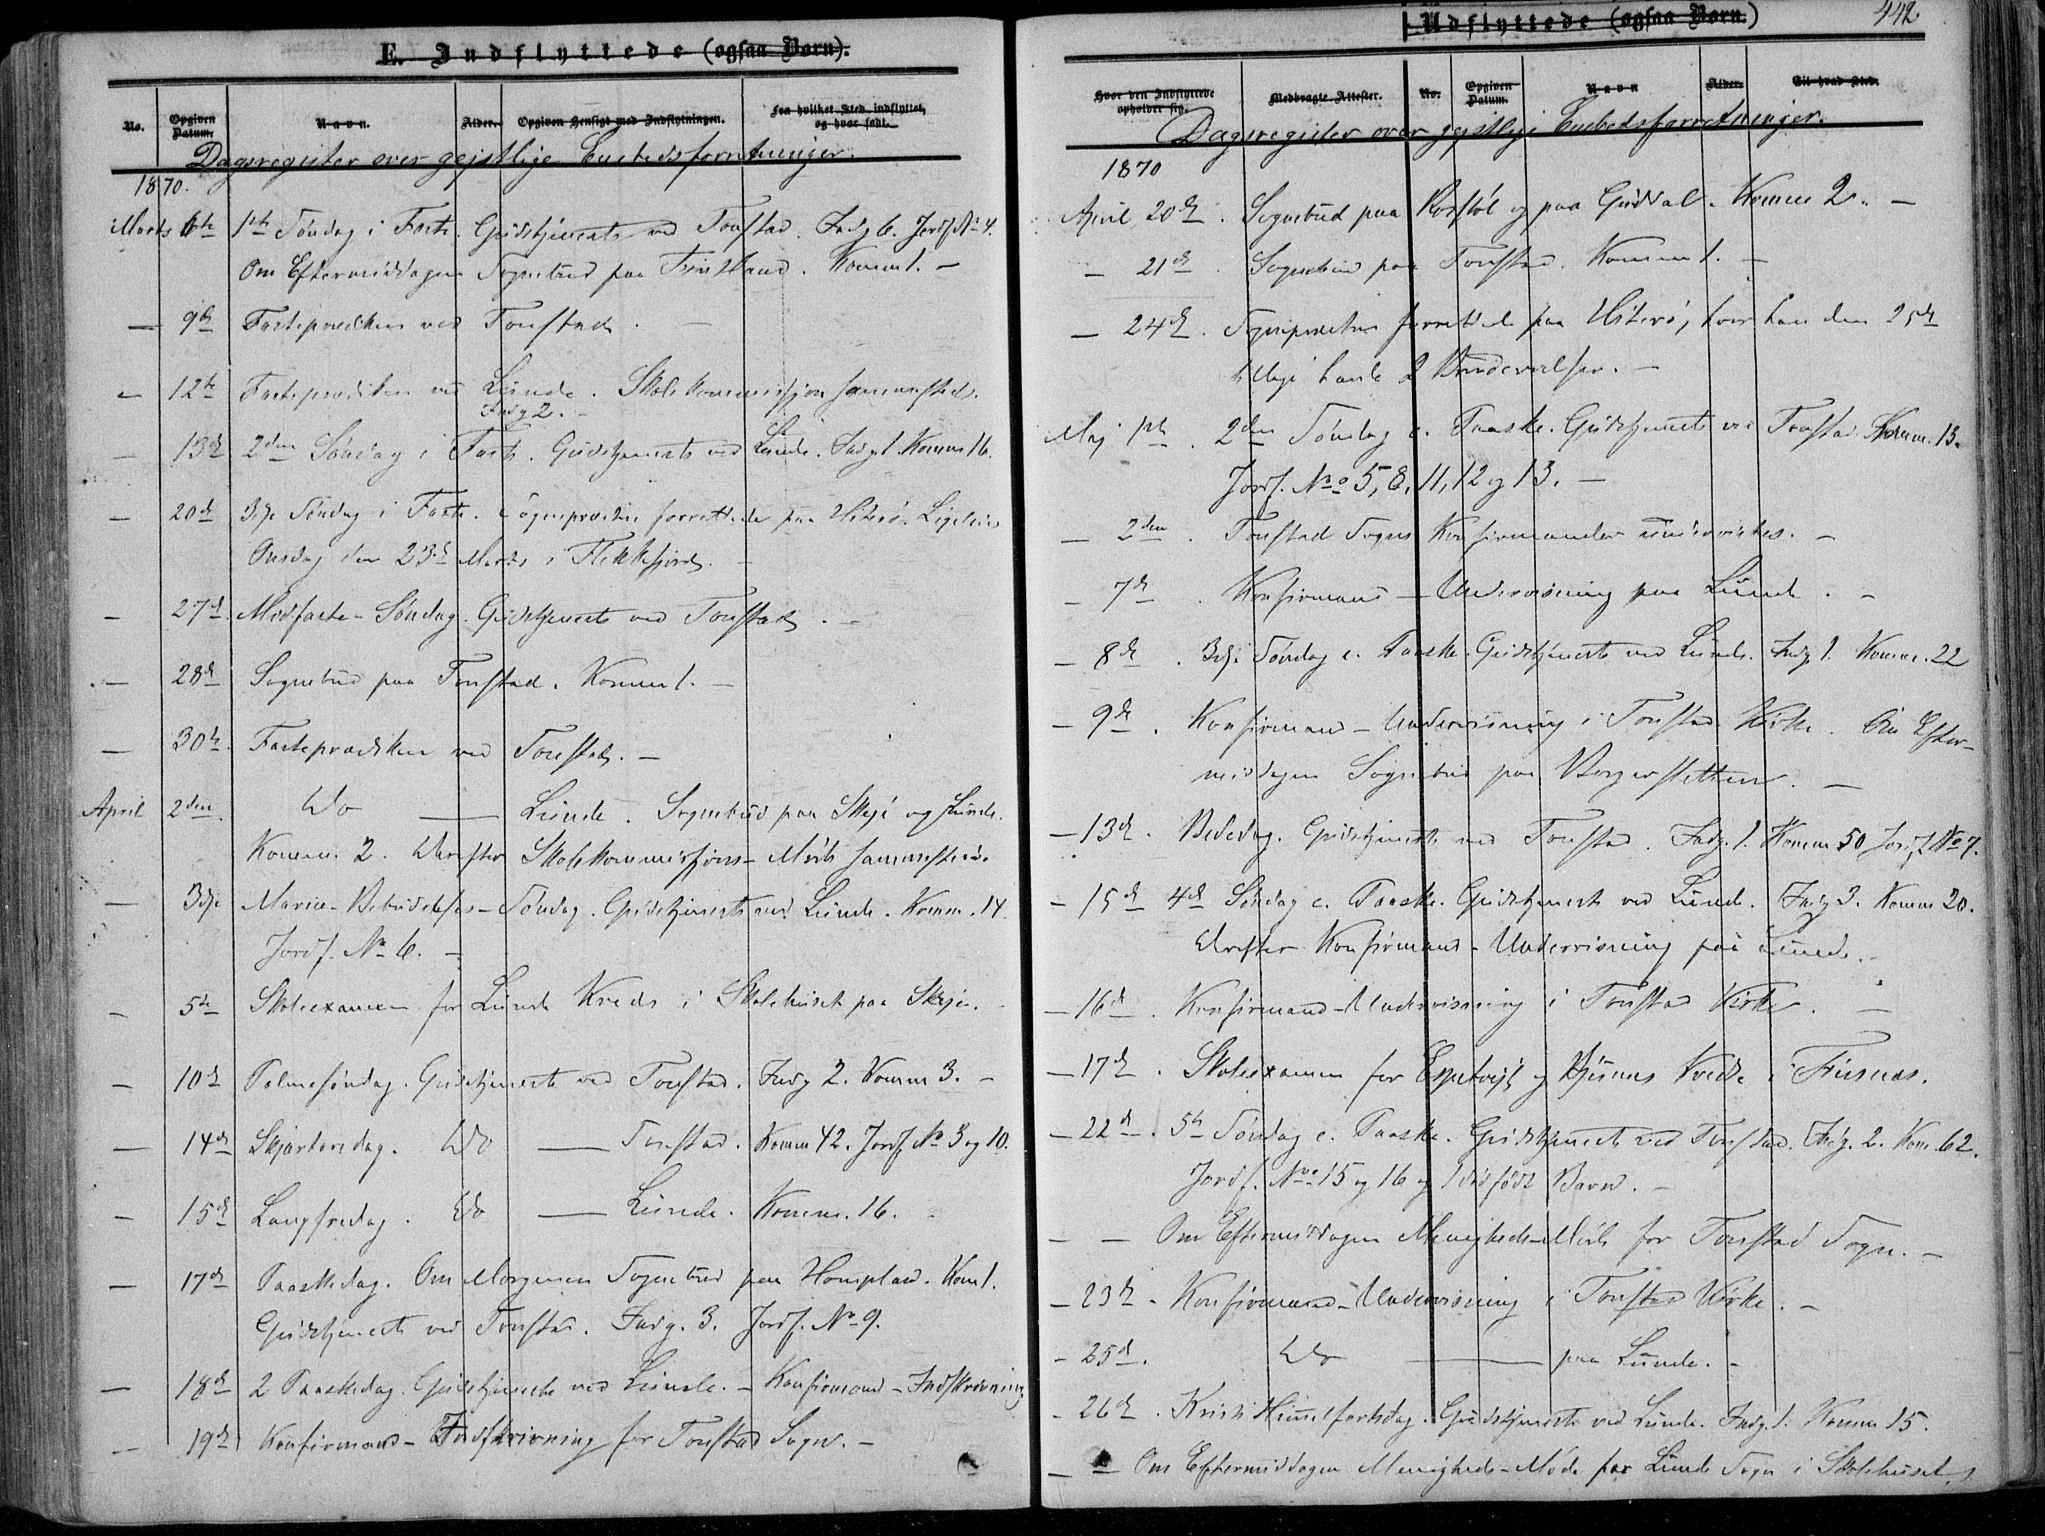 E. Indflyttede (ogsaa Børn).
No. Opgiven Datum. Navn. Alder. Opgiven Hensigt med Indflytningen. Fra hvilket Sted indflyttet, og hvor født.
Dagsregister over gejstlige Embedsforretninger.
1870.
Marts 6te 1ste Søndag i Faste. Gudstjeneste ved Tonstad. Indg 6. Jordf. No 4.
Om Eftermiddagen Sognebud paa. Komm 1. —
— 9de Fasteprædiken ved Tonstad. —
— 12te Fasteprædiken ved Lunde. Skolekommission sammesteds.
Indg 2. —
— 13de 2den Søndag i Faste. Gudstjeneste ved Lunde. Indg 1. Komm 16.
— 20de 3dje Søndag i Faste. Sognepræsten forrettede paa Hiterø. Ligeledes
Onsdag den 23de Marts i Flekkefjord. —
— 27de Midfaste-Søndag. Gudstjeneste ved Tonstad. —
— 28de Sognebud paa Tonstad. Komm 1. —
— 30te Fasteprædiken ved Tonstad. —
April 2den. Do — Lunde. Sognebud paa Skeje og Lunde.
Komm. 2. Derefter Skolekommissions-Møde sammesteds.
— 3dje Mariæ-Bebudelses-Søndag. Gudstjeneste ved Lunde. Komm. 14.
Jordf. No 6. —
— 5te Skoleexamen for Lunde Kreds i Skolehuset paa Skeje.
— 10de Palmesøndag. Gudstjeneste ved Tonstad. Indg 2. Komm 3. —
— 14de Skjærtorsdag. Do — Tonstad. Komm 42. Jordf. No 3 og 10.
— 15de Langfredag. Do — Lunde. Komm. 16.
— 17de Paaskedag. Om Morgenen Sognebud paa Hompland. Kom 1.
Gudstjeneste ved Tonstad. Indg. 3. Jordf. No 9.
— 18de 2 Paaskedag. Gudstjeneste ved Lunde. — Konfirmand-Indskrivning
— 19de Konfirmand-Indskrivning for Tonstad Sogn. —
Udflyttede (ogsaa Børn.) 442
Hvor den Indflyttede opholder sig. Medbragte Attester. No. Opgiven Datum. Navn Alder. Til hvad Sted.
Dagsregister over gejstlige Embedsforretninger.
1870
April 20de. Sognebud paa og paa Guddal. Komm 2. —
— 21de Sognebud paa Tonstad. Komm 1. —
— 24de. Sognepræsten forrettede paa Hiterø, hvor han den 25de
tillige havde 2 Brudevielser. —
Maj 1ste. 2den Søndag e. Paaske. Gudstjeneste ved Tonstad. Komm. 13.
Jordf. No 5, 8, 11, 12 og 13. —
— 2den. Tonstad Sogns Konfirmander undervistes. —
— 7de. Konfirmand-Undervisning paa Lunde. —
— 8de. 3dje Søndag e. Paaske. Gudstjeneste ved Lunde. Indg 1. Komm. 22
— 9de. Konfirmand-Undervisning i Tonstad Kirke. Om Efter-
middagen Sognebud paa. —
— 13de. Bededag. Gudstjeneste ved Tonstad. Indg. 1. Komm 50 Jordf. No 7.
— 15de 4de Søndag e. Paaske. Gudstjeneste ved Lunde. Indg 3. Komm 20.
Derefter Konfirmand-Undervisning paa Lunde.
— 16de. Konfirmand-Undervisning i Tonstad Kirke. —
— 17de. Skoleexamen for Espetvejt og Fjusnes Kredse i Fiusnes.
— 22de. 5te Søndag e. Paaske. Gudstjeneste ved Tonstad. Indg. 2. Kom. 62.
Jordf. No 15 og 16 og 1 dødfødt Barn. —
— — Om Eftermiddagen Menigheds-Møde for Tonstad Sogn. —
— 23de. Konfirmand-Undervisning i Tonstad Kirke. —
— 25de. Do — paa Lunde. —
— 26de. Kristi Himmelfartsdag. Gudstjeneste ved Lunde. Indg. 1. Komm 15.
— — Om Eftermiddagen Menigheds-Møde for Lunde Sogn i Skolehuset